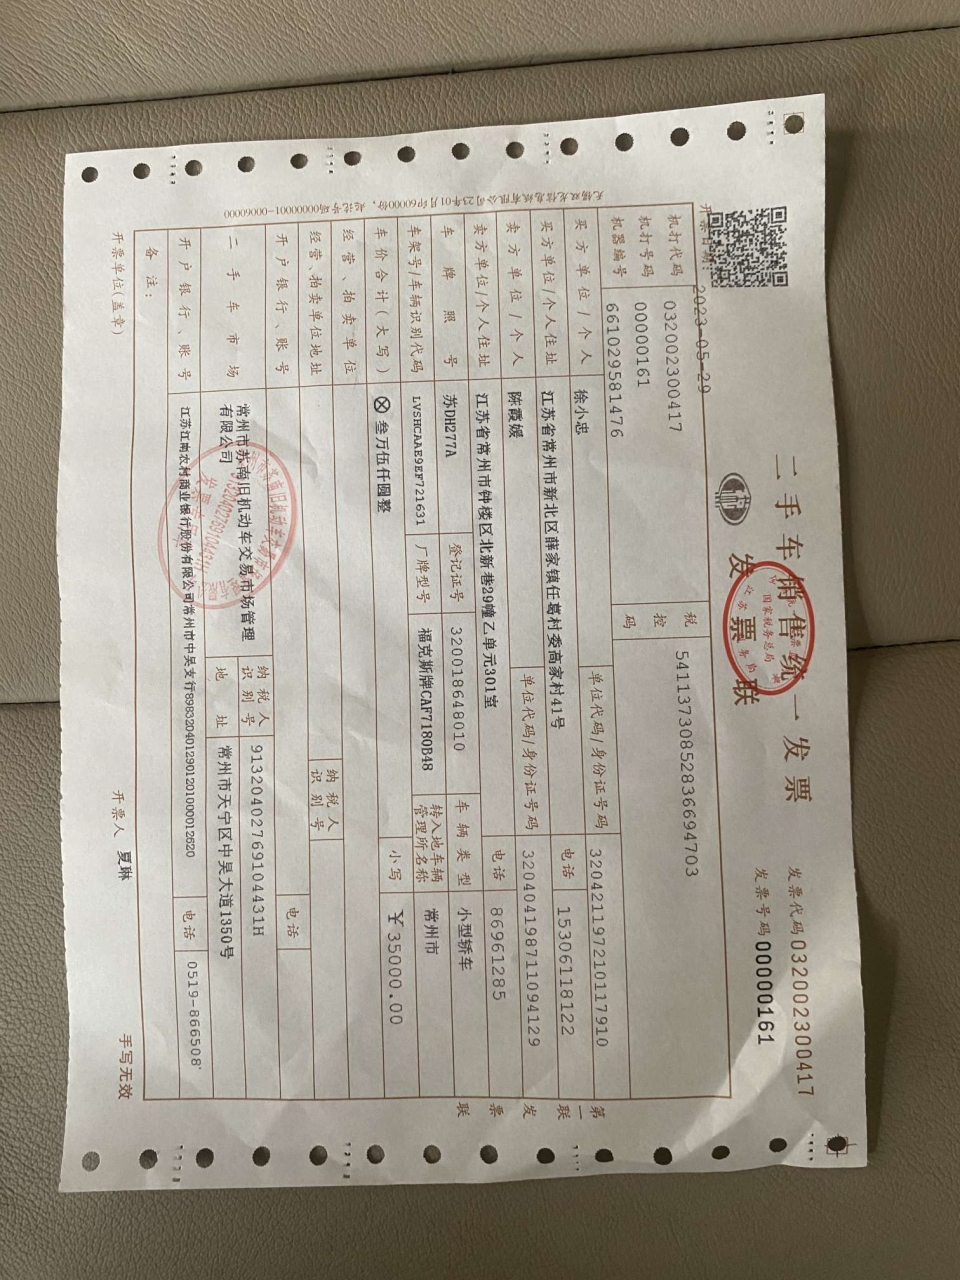 二手车销售统一发票
发票联
发票代码 032002300417
发票号码 00000161
开票日期: 2023-05-29
机打代码 032002300417
机打号码 00000161
机器编号 661029581476
税控码 54113730852836694703
买方单位/个人 徐小忠 单位代码/身份证号码 320421197210117910
买方单位/个人住址 江苏省常州市新北区薛家镇任葛村委高家村41号 电话 15306118122
卖方单位/个人 陈霞媛 单位代码/身份证号码 320404198711094129
卖方单位/个人住址 江苏省常州市钟楼区北新巷29幢乙单元301室 电话 86961285
车牌照号 苏DH277A 登记证号 320018648010 车辆类型 小型轿车
车架号/车辆识别代码 LVSHCAAE9EF721631 厂牌型号 福克斯牌CAF7180B48 转入地车辆管理所名称 常州市
车价合计(大写) ⊗叁万伍仟圆整 小写 ¥35000.00
经营、拍卖单位
经营、拍卖单位地址 纳税人识别号
开户银行、账号 电话
二手车市场 常州市苏南旧机动车交易市场管理有限公司 纳税人识别号 91320402769104431H
地址 常州市天宁区中吴大道1350号
开户银行、账号 江苏江南农村商业银行股份有限公司常州市中吴支行89832040129012010000012620 电话 0519-866508
备注:
开票单位(盖章) 开票人 夏琳 手写无效
第一联 发票联
国家税务总局